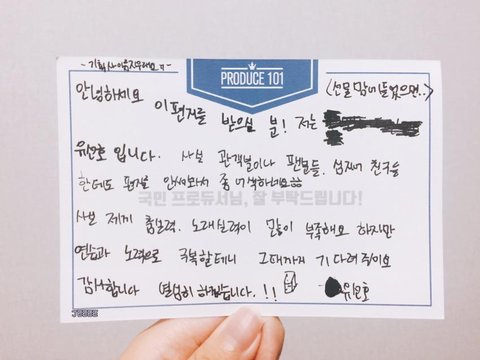 PRODUCE 101
(선물 맘에 들었으면..)
안녕하세요 이 편지를 받으실 분! 저는
유선호 입니다. 사실 관객분이나 팬분들, 심지어 친구들
한테도 편지를 안써봐서 좀 어색하네요
국민 프로듀서님, 잘 부탁드립니다!
사실 제게 춤실력, 노래실력이 많이 부족해요 하지만
연습과 노력으로 극복할테니 그때까지 기다려주세요
감사합니다 열심히 하겠습니다.!!
유선호